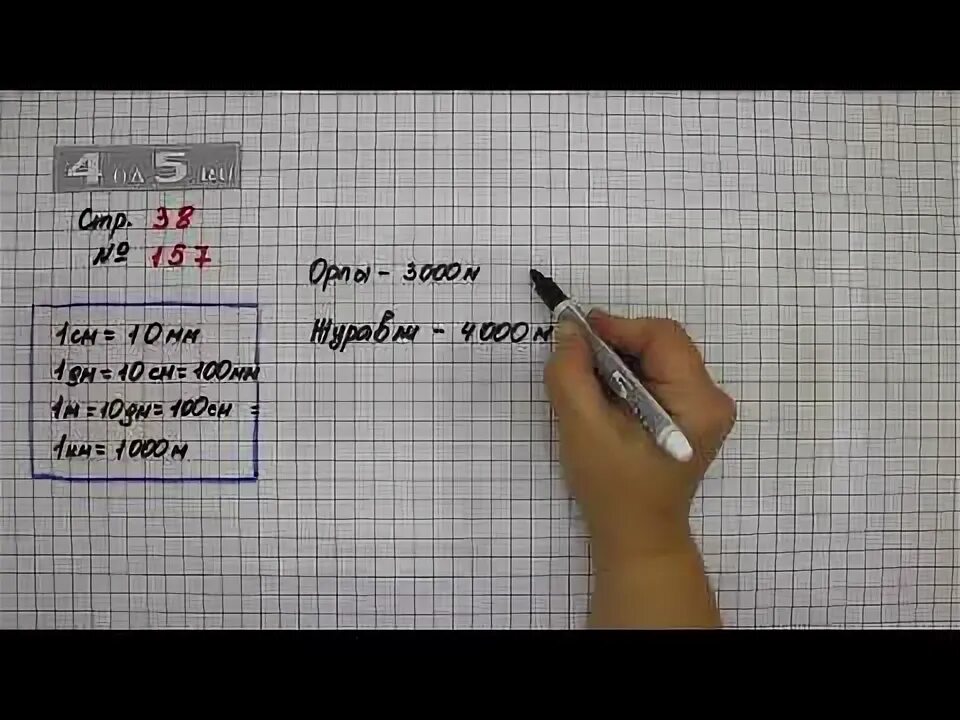 4 од 5.
Стр. 38
№ 157
1см = 10 мм
1дм = 10 см = 100 мм
1м = 10 дм = 100 см =
1км = 1000 м
Орлы - 3000 м
Журавли - 4000 м